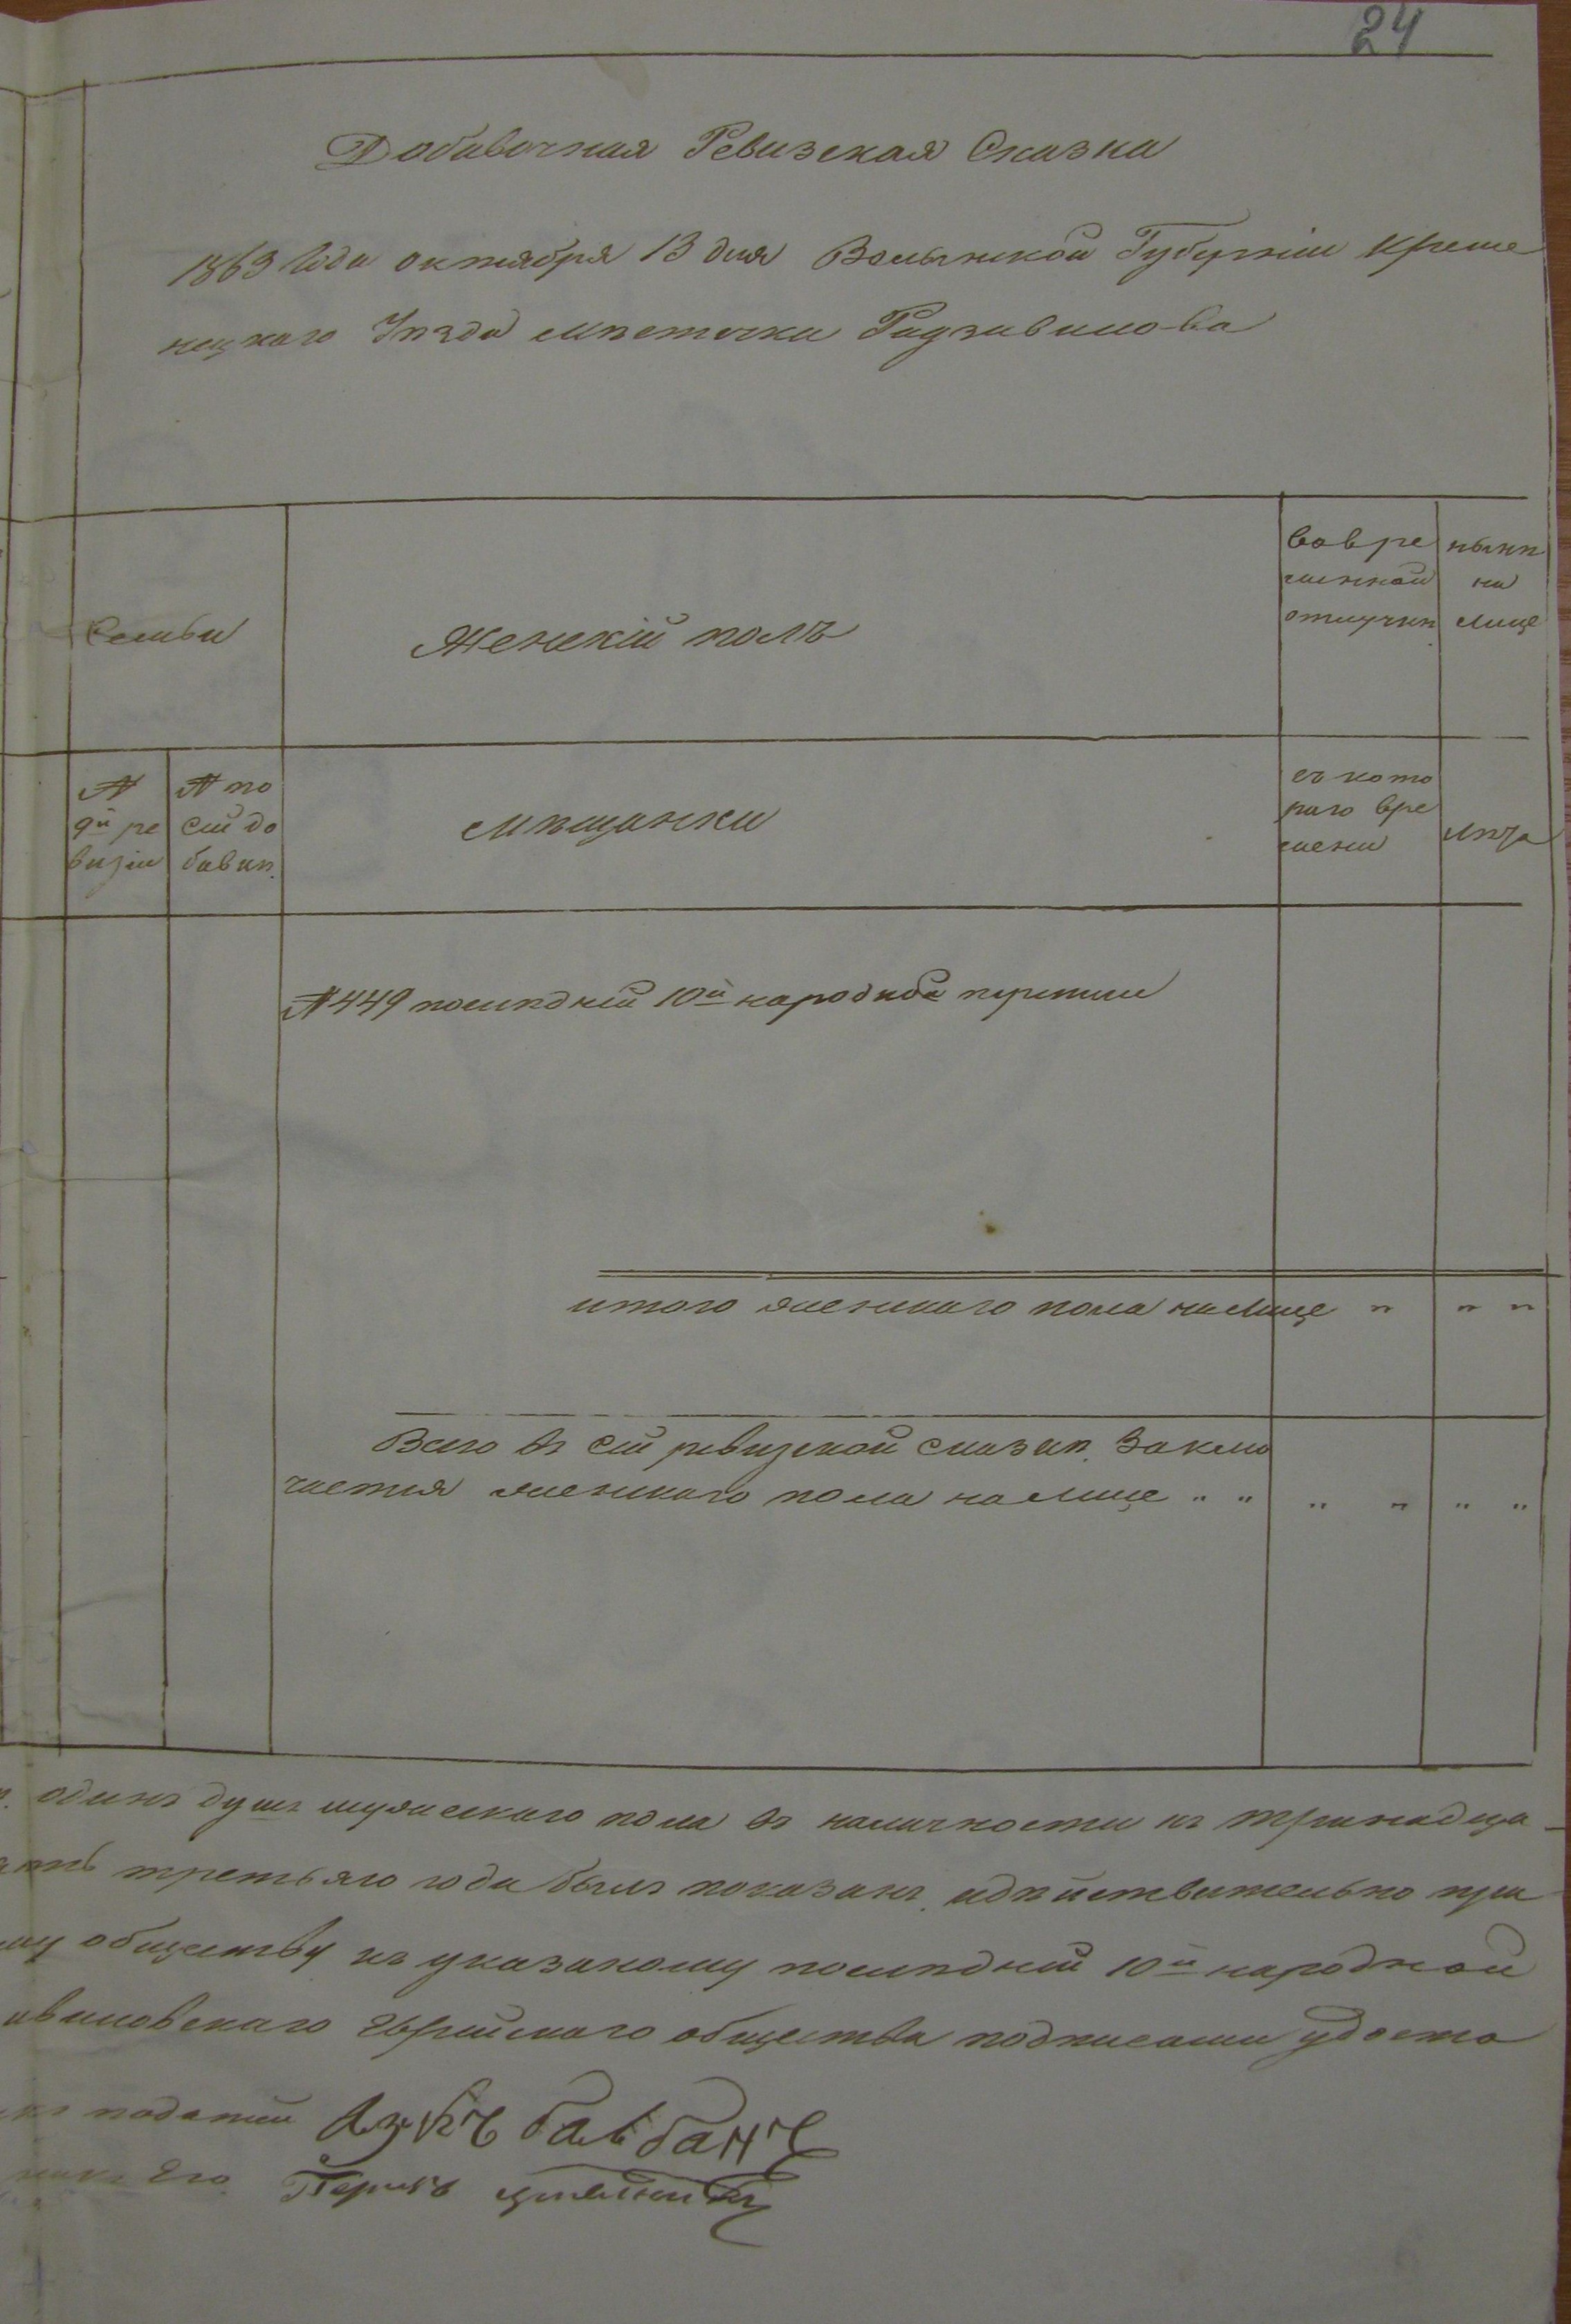 24
Добавочная Ревизская Сказка
1863 Года октября 13 дня Волынской Губерніи Креме
нецкаго Уѣзда мѣстечка Радзивилова
Семьи
Женскій полъ
вовре
менной
отлучкѣ.
нынѣ
на
лице
№
9й ре
визіи
№ по
сей до
бавкѣ.
Мѣщанки
съ кото
раго вре
мени
Лѣта
№ 449 послѣдней 10й народной переписи
итого женскаго пола на Лице " " "
Всего въ сей ревизской сказкѣ. Заклю
чается женскаго пола на Лице " " " " " "
одинъ душъ мужескаго пола въ наличности къ тринадца
третьяго года былъ показанъ. идѣйствительно при
му обществу къ указаному послѣдней 10й народной
ивиловскаго Еврейскаго общества подписами удосто
податей
Его.